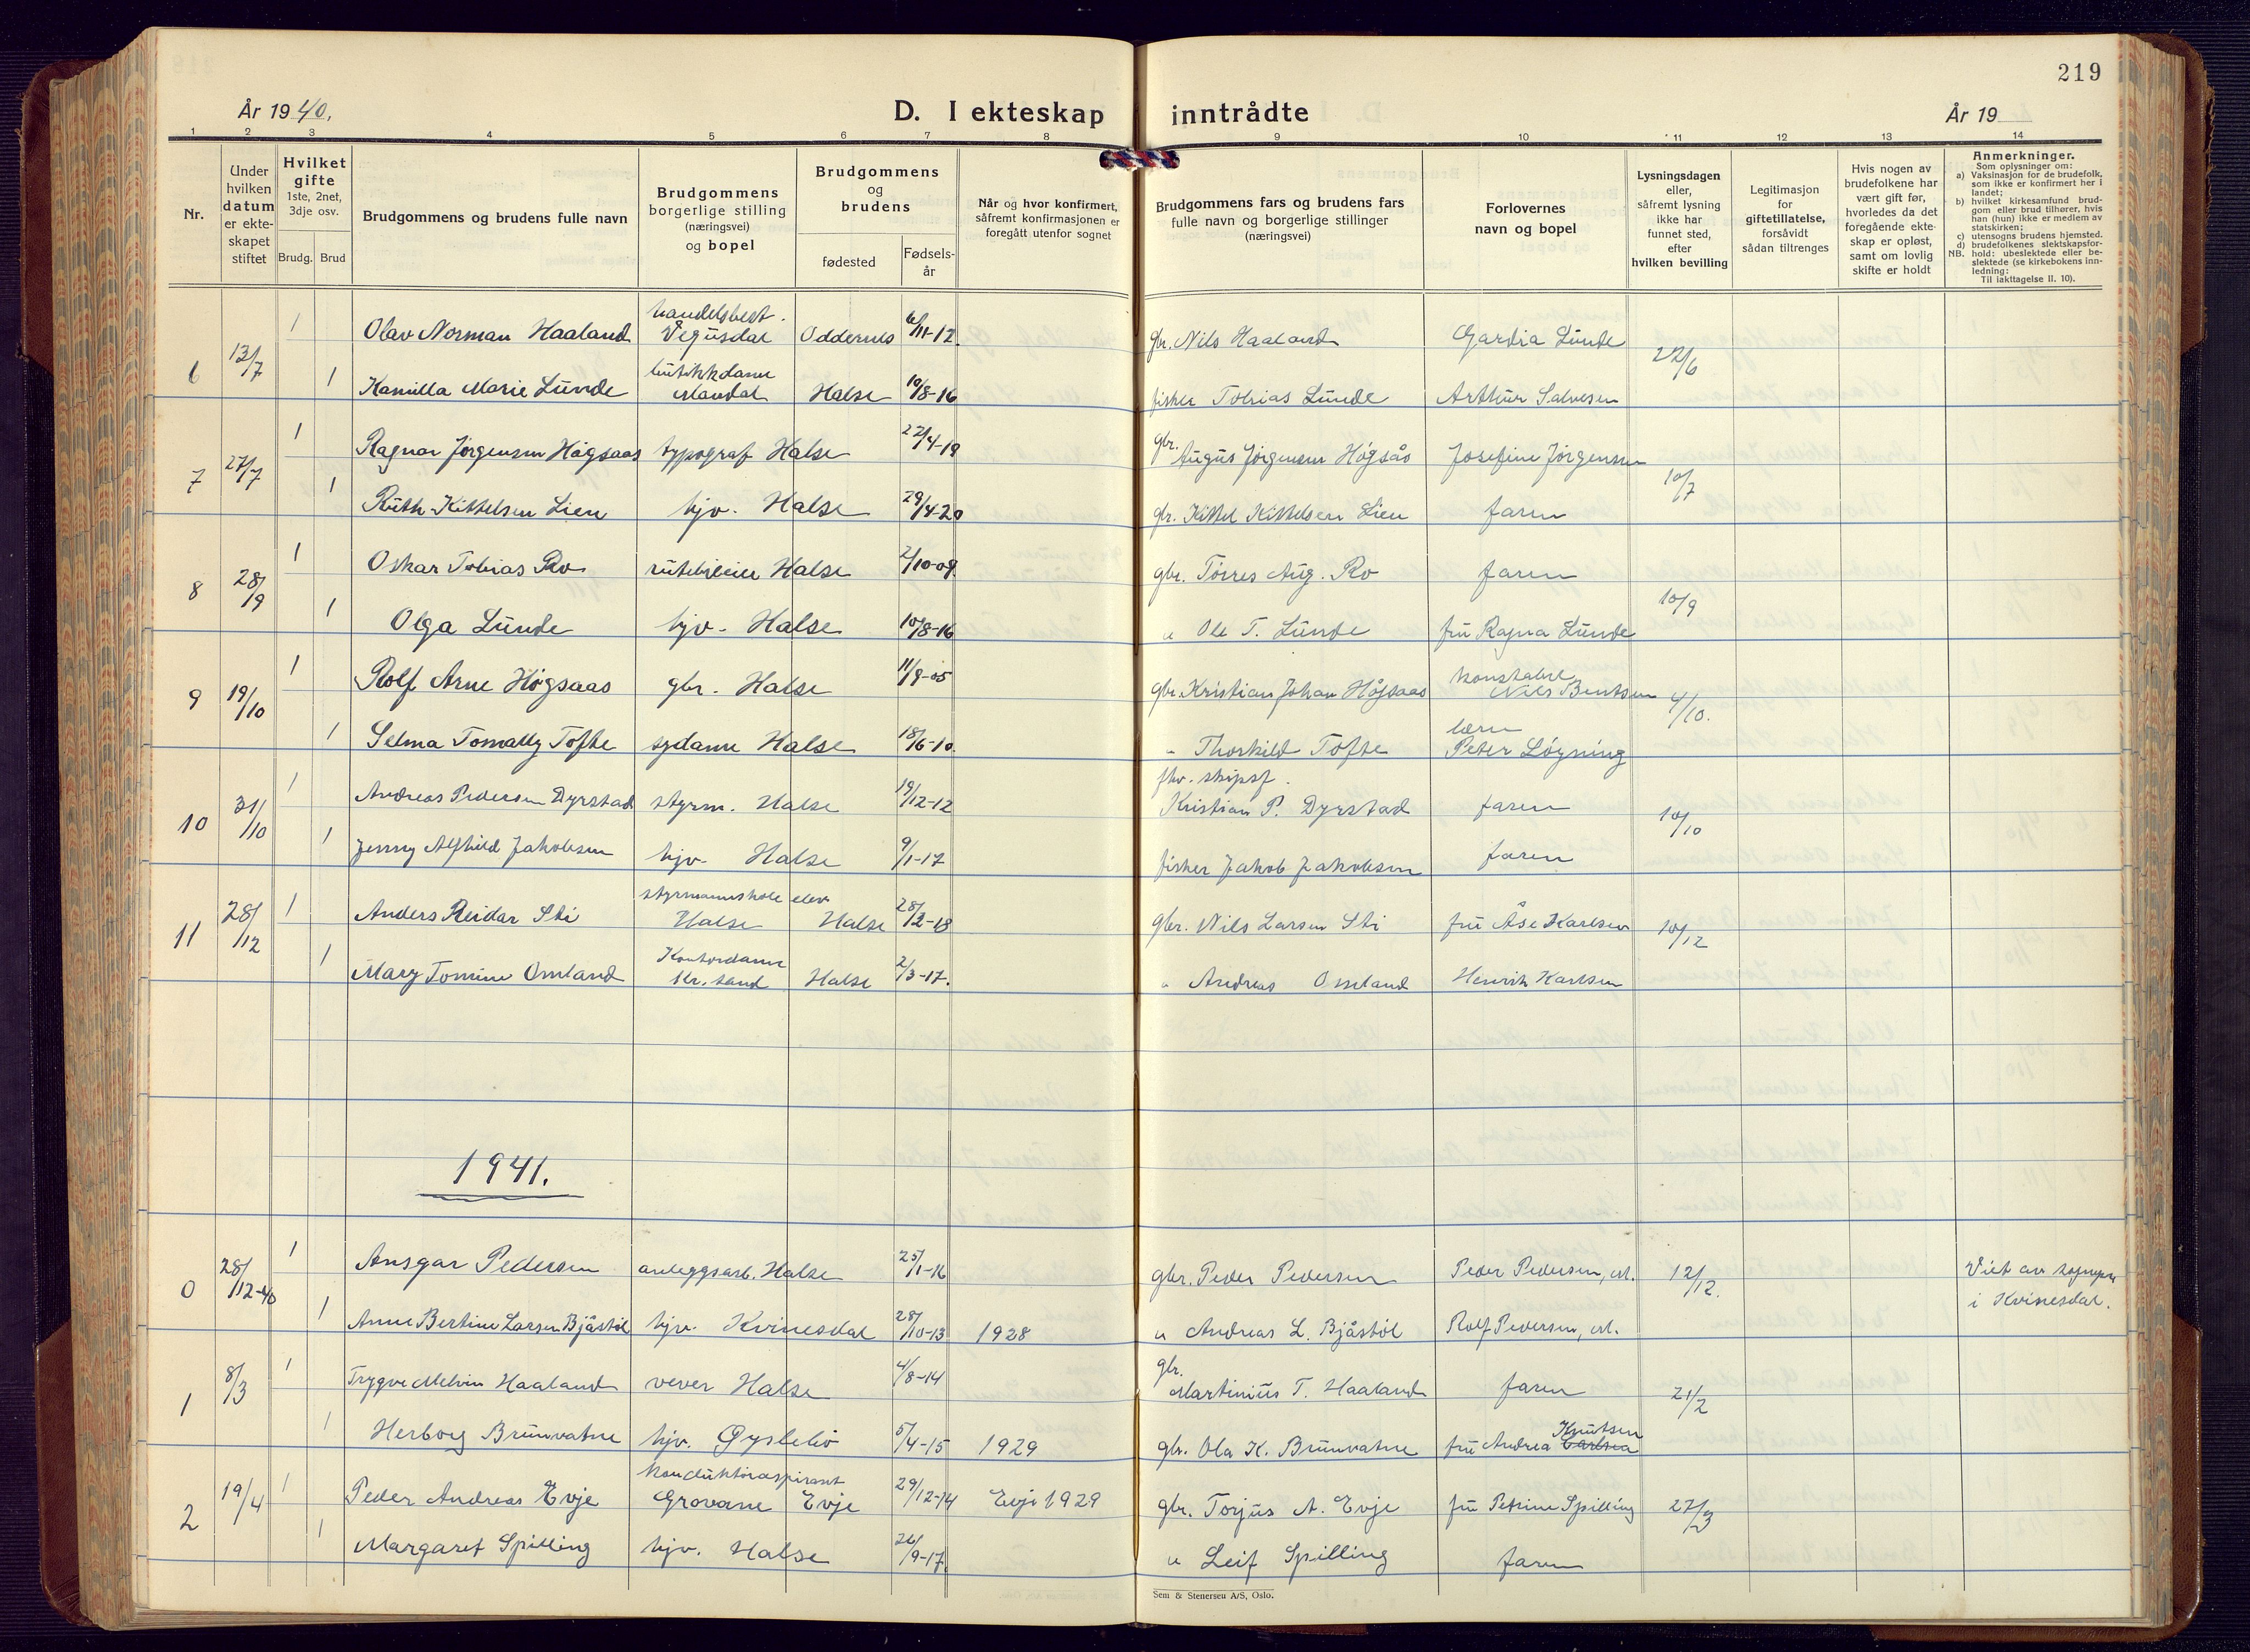 219
År 1940.
D. I ekteskap inntrådte
År 19
1 2 3 4 5 6 7 8 9 10 11 12 13 14
Nr.
Under hvilken datum er ekteskapet stiftet
Hvilket gifte 1ste, 2net, 3dje osv.
Brudg. Brud
Brudgommens og brudens fulle navn
Brudgommens borgerlige stilling (næringsvei) og bopel
Brudgommens og brudens
fødested
Fødsels-år
Når og hvor konfirmert, såfremt konfirmasjonen er foregått utenfor sognet
Brudgommens fars og brudens fars fulle navn og borgerlige stillinger (næringsvei)
Forlovernes navn og bopel
Lysningsdagen eller, såfremt lysning ikke har funnet sted, efter hvilken bevilling
Legitimasjon for giftetillatelse, forsåvidt sådan tiltrenges
Hvis nogen av brudefolkene har vært gift før, hvorledes da det foregående ekteskap er opløst, samt om lovlig skifte er holdt
Anmerkninger.
Som oplysninger om:
a) Vaksinasjon for de brudefolk, som ikke er konfirmert her i landet;
b) hvilket kirkesamfund brudgom eller brud tilhører, hvis han (hun) ikke er medlem av statskirken;
c) utensogns brudens hjemsted.
d) brudefolkenes slektskapsforhold: ubeslektede eller beslektede (se kirkebokens innledning:
NB. Til iakttagelse II. 10).
6 13/7 1 Olav Norman Haaland handelsbest. Vegusdal Oddernes 6/11-12. gbr. Nils Haaland Gardia Lunde 22/6
1 Kamilla Marie Lunde butikkdame Mandal Halse 10/8-16 fisker Tobias Lunde Arthur Salvesen
7 27/7 1 Ragnar Jørgensen Høgsaas typograf Halse 22/4-19 gbr. Augus Jørgensen Høgsås Josefine Jørgensen 10/7
1 Ruth Kittelsen Lien hjv. Halse 29/4-20 gbr. Kittel Kittelsen Lien faren
8 28/9 1 Oskar Tobias Ro rutebileier Halse 2/10-09. gbr. Tørres Aug. Ro faren 10/9
1 Olga Lunde hjv. Halse 10/8-16 " Ole T. Lunde fru Ragna Lunde
9 19/10 1 Rolf Arne Høgsaas gbr. Halse 11/9-05 gbr. Kristian Johan Høgsaas konstabel Nils Bentsen 4/10.
1 Selma Tomally Tofte sydame Halse 18/6-10. " Thorkild Tofte lærer Peter Løgning
10 31/10 1 Andreas Pedersen Dyrstad styrm. Halse 19/12-12 fhv. skipsf. Kristian P. Dyrstad faren 10/10
1 Jenny Alfhild Jakobsen hjv. Halse 9/1-17 fisker Jakob Jakobsen faren
11 28/12 1 Anders Reidar Sti styrmannskole elev Halse Halse 28/12-18 gbr. Nils Larsen Sti fru Åse Karlsen 10/12
1 Mary Tomine Omland Kontordame Kr.sand Halse 2/3-17. " Andreas Omland Henrik Karlsen
1941.
0 28/12-40 1 Ansgar Pedersen anleggsarb. Halse 25/1-16 gbr. Peder Pedersen Peder Pedersen, 12/12. Viet av sognepr. i Kvinesdal.
1 Anne Bertine Larsen Bjåstøl hjv. Kvinesdal 28/10-13 1928 " Andreas L. Bjåstøl Rolf Pedersen,
1 8/3 1 Trygve Melvin Haaland vever Halse 4/8-14 gbr. Martinius T. Haaland faren 21/2
1 Herborg Brunvatne hjv. Øyslebø 5/4-15 1929 gbr. Ola K. Brunvatne fru Andrea Knutsen
2 19/4 1 Peder Andreas Evje konduktøraspirant Grovane Evje 29/12-14 Evje 1929 gbr. Torjus A. Evje fru Petrine Spilling 27/3
1 Margaret Spilling hjv. Halse 26/9-17. " Leif Spilling faren
Sem & Stenersen A/S, Oslo.